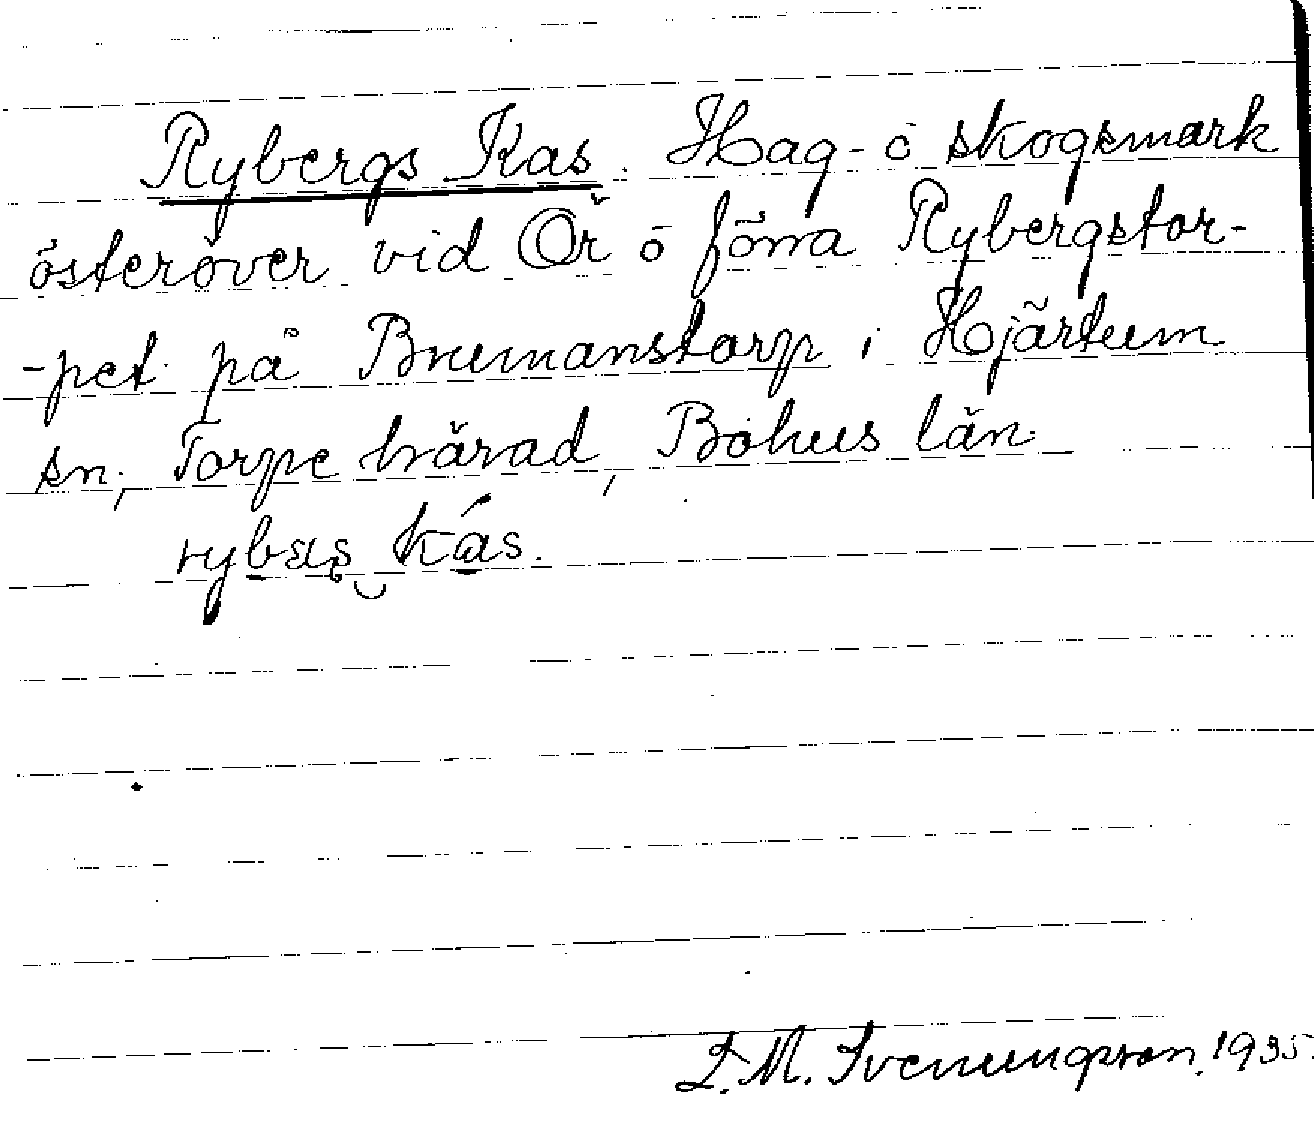 Rybergs Kas. Hag- ö skogsmark
österöver vid Ör ö förra Rybergstor-
-pet på Brumanstorp i Hjärtum
sn., Torpe härad, Bohus län.
kás.
L. M. Svenungsson. 1935.